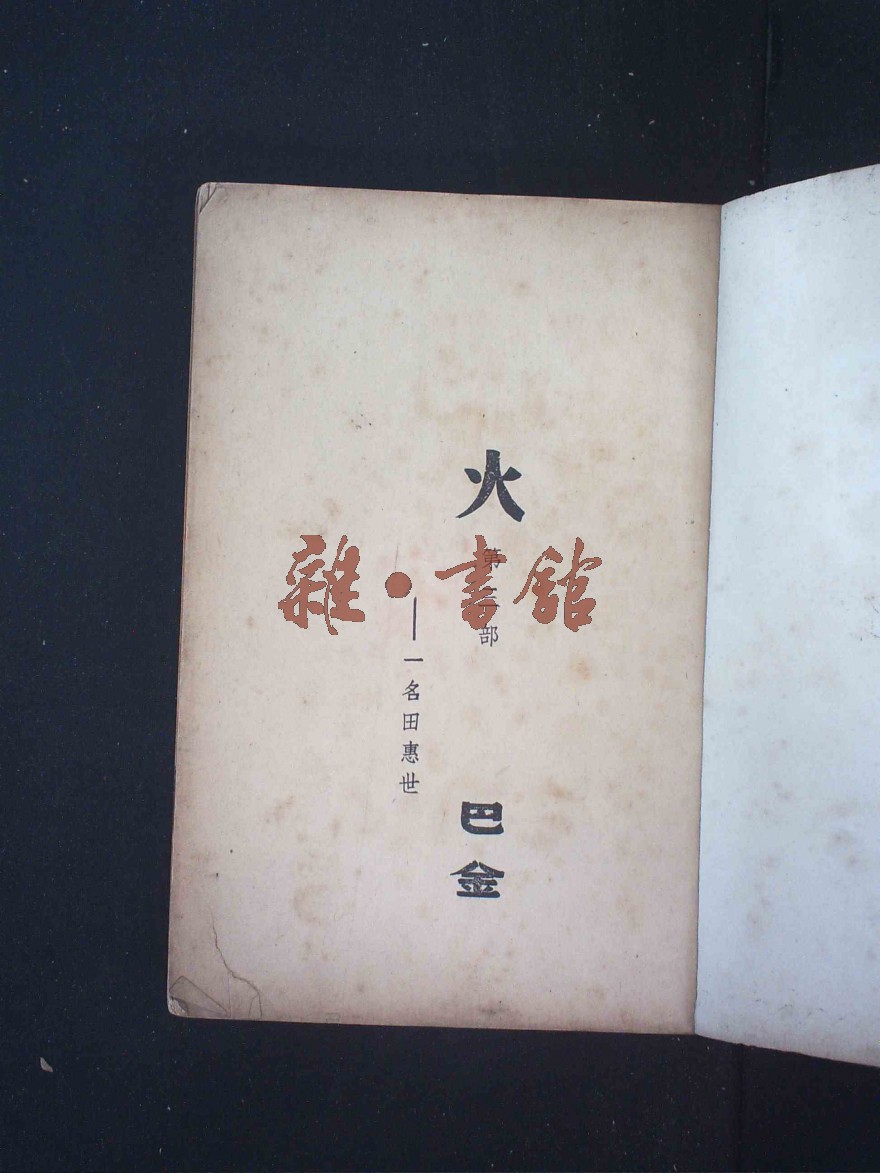 火
第三部
——一名田惠世
巴金
雜·書館